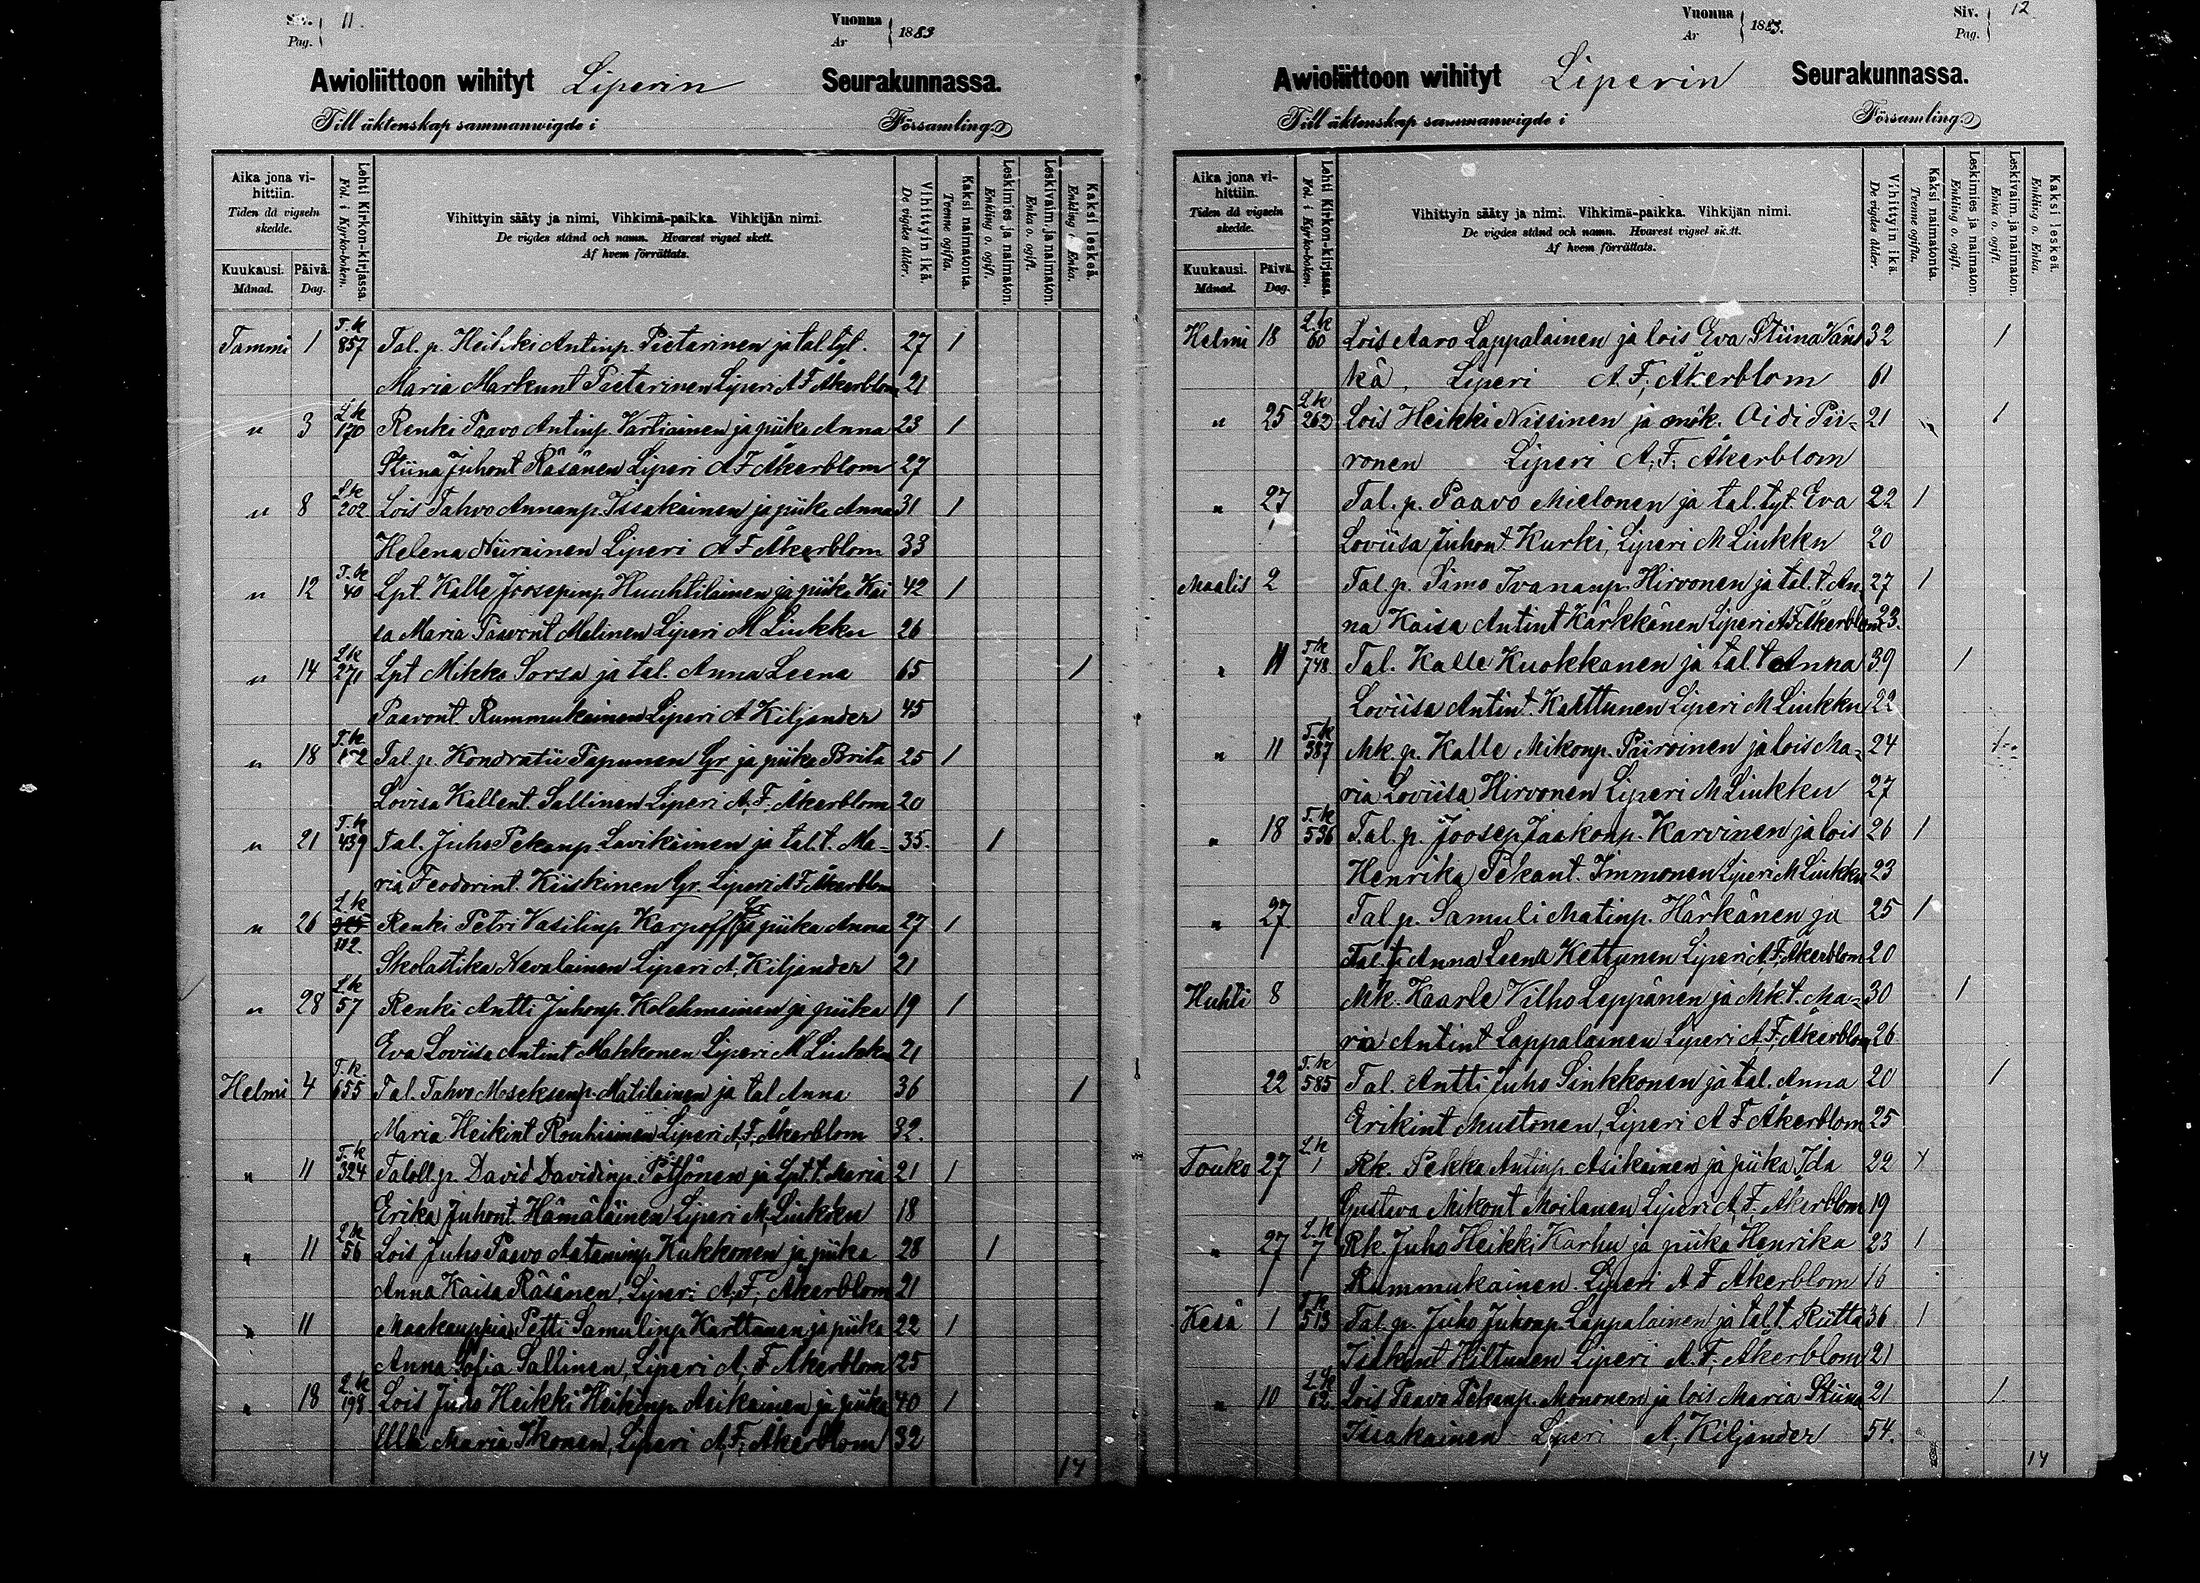 Siv. 11.
Pag.
Vuonna 1883
År
Awioliittoon wihityt Liperin Seurakunnassa.
Till äktenskap sammanwigde i Församling
Aika jona vihittiin.
Tiden då vigseln skedde.
Kuukausi. Månad.
Päivä. Dag.
Lehti Kirkon-kirjassa.
Fol. i Kyrko-boken.
Vihittyin sääty ja nimi, Vihkimä-paikka. Vihkijän nimi.
De vigdes stånd och namn. Hvarest vigsel skett.
Af hvem förrättats.
Vihittyin ikä.
De vigdes ålder.
Kaksi naimatonta.
Tvenne ogifta.
Leskimies ja naimaton.
Enkling o. ogift.
Leskivaim. ja naimaton.
Enka o. ogift.
Kaksi leskeä.
Enkling o. Enka.
Tammi 1 T.k 857 Tal. p. Heikki Antinp. Pietarinen ja tal. tyt. 27 1
Maria Markunt Pietarinen Liperi A F Åkerblom 21
" 3 L.k 170 Renki Paavo Antinp. Vartiainen ja piika Anna 23 1
Stiina Juhont Räsänen Liperi A F Åkerblom 27
" 8 L.k 202 Lois Tahvo Annanp. Issakainen ja piika Anna 31 1
Helena Niirainen Liperi A F Åkerblom 33
" 12 T.k 40 Lpt. Kalle Joosepinp. Huuhtilainen ja piika Kai 42 1
sa Maria Paavont Malinen Liperi M Liukku 26
" 14 L.k 271 Lpt Mikko Sorsa ja tal. Anna Leena 65 1
Paavont. Rummukainen Liperi A Kiljander 45
" 18 T.k Tal. p. Kondratii Papunen Gr. ja piika Brita 25 1
Lovisa Kallent. Sallinen Liperi A, F, Åkerblom 20
" 21 T.k 439 Tal. Juho Pekanp Lavikainen ja tal. t. Ma- 35. 1
ria Feodorint. Kiiskinen Gr. Liperi A F Åkerblom
" 26 L.k 112. Renki Petri Vasilinp Karpoff Gr ja piika Anna 27 1
Skolastika Nevalainen Liperi A, Kiljander 21
" 28 L.k 57 Renki Antti Juhonp. Kolehmainen ja piika 19 1
Eva Loviisa Antint Makkonen Liperi M Liukku 21
Helmi 4 T.k. 655 Tal. Tahvo Moseksenp. Matilainen ja tal Anna 36 1
Maria Heikint Rouhiainen Liperi A, F, Åkerblom 32.
" 11 T.k 324 Taloll. p. David Davidinp. Pötjönen ja Lpt. t. Maria 21 1
Erika Juhont Hämäläinen Liperi M, Liukku 18
" 11 L.k 56 Lois Juho Paavo Aataminp. Kukkonen ja piika 28 1
Anna Kaisa Räsänen, Liperi A, F, Åkerblom 21
" 11 Maakauppias Petti Samulinp. Karttunen ja piika 22 1
Anna Sofia Sallinen, Liperi A, F Åkerblom 25
" 18 L.k 198 Lois Juho Heikki Heikinp. Asikainen ja piika 40 1
Ulla Maria Ikonen, Liperi A, F, Åkerblom 32
14
Vuonna 1883.
År
Siv. 12
Pag.
Awioliittoon wihityt Liperin Seurakunnassa.
Till äktenskap sammanwigde i Församling
Aika jona vihittiin.
Tiden då vigseln skedde.
Kuukausi. Månad.
Päivä. Dag.
Lehti Kirkon-kirjassa.
Fol. i Kyrko-boken.
Vihittyin sääty ja nimi. Vihkimä-paikka. Vihkijän nimi.
De vigdes stånd och namn. Hvarest vigsel skett.
Af hvem förrättats.
Vihittyin ikä.
De vigdes ålder.
Kaksi naimatonta.
Tvenne ogifta.
Leskimies ja naimaton.
Enkling o. ogift.
Leskivaim. ja naimaton.
Enka o. ogift.
Kaksi leskeä.
Enkling o. Enka.
Helmi 18 L.k 60 Lois Aaro Lappalainen ja lois Eva Stiina Vänt 32 1
kä, Liperi A. F, Åkerblom 61
" 25 L.k 262 Lois Heikki Nissinen ja mök. Aidi Pii- 21 1
ronen Liperi A, F, Åkerblom
" 27 Tal. p. Paavo Mielonen ja tal. tyt. Eva 22 1
Loviisa Juhont Kurki, Liperi M Liukku 20
Maalis 2 Tal. p. Simo Ivananp. Hirvonen ja tal. t. An 27 1
na Kaisa Antint Kärkkänen Liperi A F Åkerblom 23.
" 11 T.k 748 Tal. Kalle Kuokkanen ja tal. t Anna 39 1
Loviisa Antint. Karttunen Liperi M Liukku 22
" 11 T.k 387 Mk. p. Kalle Mikonp. Päiroinen ja lois Ma- 24 1
ria Loviisa Hirvonen Liperi M Liukku 27
" 18 T.k 536 Tal. p. Joosep Jaakonp. Karvinen ja lois 26 1
Henrika Pekant. Immonen Liperi M Liukku 23
" 27. Tal p. Samuli Matinp. Härkänen ja 25 1
Tal. t. Anna Leena Kettunen Liperi A, F, Åkerblom 20
Huhti 8 Mk. Kaarle Vilho Leppänen ja Mk. t. Ma- 30 1
ria Antint Lappalainen Liperi A, F, Åkerblom 26
22 T.k 585 Tal. Antti Juho Sinkkonen ja tal. Anna 20 1
Erikint Mustonen, Liperi A F Åkerblom 25
Touko 27 L.k 1 Rk. Pekka Antinp. Asikainen ja piika Ida 22 1
Gustava Mikont Moilanen Liperi A, F. Åkerblom 19
" 27 L.k 7 Rk. Juho Heikki Karhu ja piika Henrika 23 1
Rummukainen. Liperi A F Åkerblom 16
Kesä 1 T.k 513 Tal. p. Juho Juhonp. Lappalainen ja tal. t. Riitta 36 1
Isakint Hiltunen Liperi A. F, Åkerblom 21
" 10 L.k 62 Lois Paavo Pekanp. Mononen ja lois Maria Stiina 21 1
Issakainen Liperi A, Kiljander 54.
14